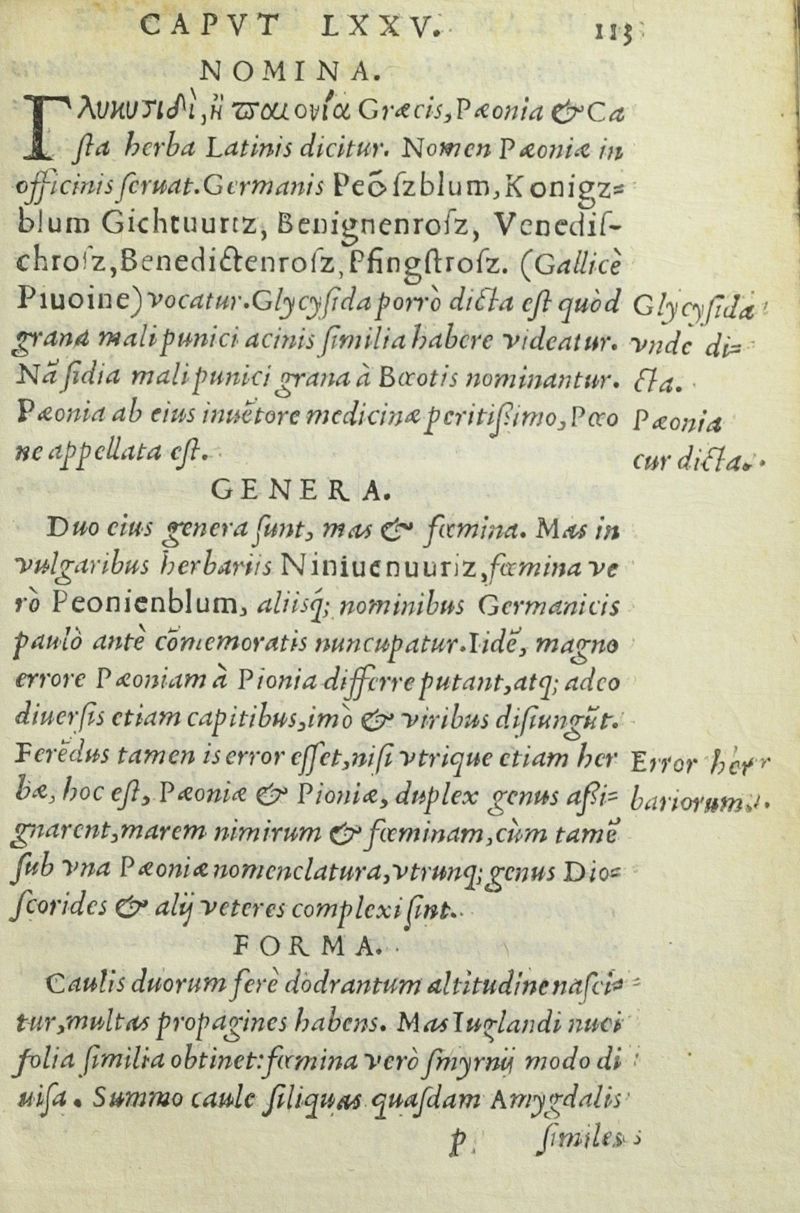 CAPVT LXXV. 113
NOMINA.
Γλυκυσιδὶ, ἢ παιονία Græcis, Pæonia & Ca
sta herba Latinis dicitur. Nomen Pæoniæ in
officinis seruat. Germanis Peōſzblum, Konigz=
blum Gichtuurtz, Benignenroſz, Venediſ-
chroſz, Benedictenroſz, Pfingſtroſz. (Gallicè
Piuoine) vocatur. Glycyſida porrò dicta eſt quòd
Glycyſida
grana mali punici acinis ſimilia habere videatur.
vnde di=
Nā ſidia mali punici grana à Bœotis nominantur.
cta.
Pæonia ab eius inuētore medicinæ peritiſsimo, Pæo
Pæonia
ne appellata eſt.
cur dicta.
GENERA.
Duo eius genera ſunt, mas & fœmina. Mas in
vulgaribus herbariis Niniuenuurtz, fœmina ve
rò Peonienblum, aliisq; nominibus Germanicis
paulò antè cōmemoratis nuncupatur. Iidē, magno
errore Pæoniam à Pionia differre putant, atq; adeo
diuerſis etiam capitibus, imò & viribus diſiungūt.
Ferēdus tamen is error eſſet, niſi vtrique etiam her
Error her
bæ, hoc eſt, Pæoniæ & Pioniæ, duplex genus aſsi=
bariorum.
gnarent, marem nimirum & fœminam, cùm tamē
ſub vna Pæoniæ nomenclatura, vtrunq; genus Dio=
ſcorides & alij veteres complexi ſint.
FORMA.
Caulis duorum ferè dodrantum altitudine naſci=
tur, multas propagines habens. Mas Iuglandi nuci
folia ſimilia obtinet: fœmina verò ſmyrnij modo di
uiſa. Summo caule ſiliquas quaſdam Amygdalis
p ſimiles